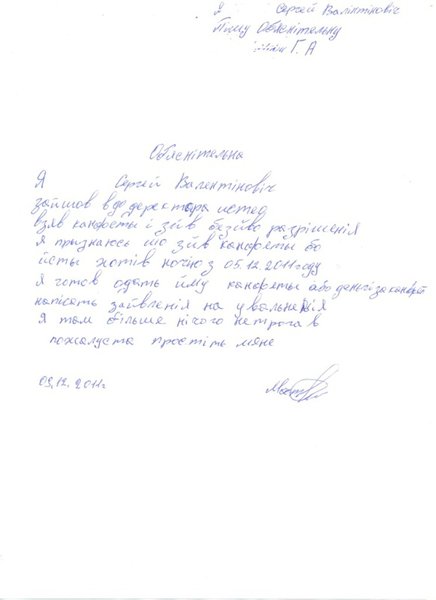 Я Сергей Валінтіновіч
Пишу Обяснітельну
Г. А
Обяснітельна
Я Сергей Валентіновіч
зайшов вдо деректора
взяв канфеты і зїв безйво разрішенія
я признаюсь шо зїв канфеты бо
йсты хотів ночю з 05.12.2011году
Я готов одать йму канфеты або деньгі за канфети
напісать заявленія на увальненія
Я там більше нічого нетрогав
пожалуста простіть мяне
09.12.2011г